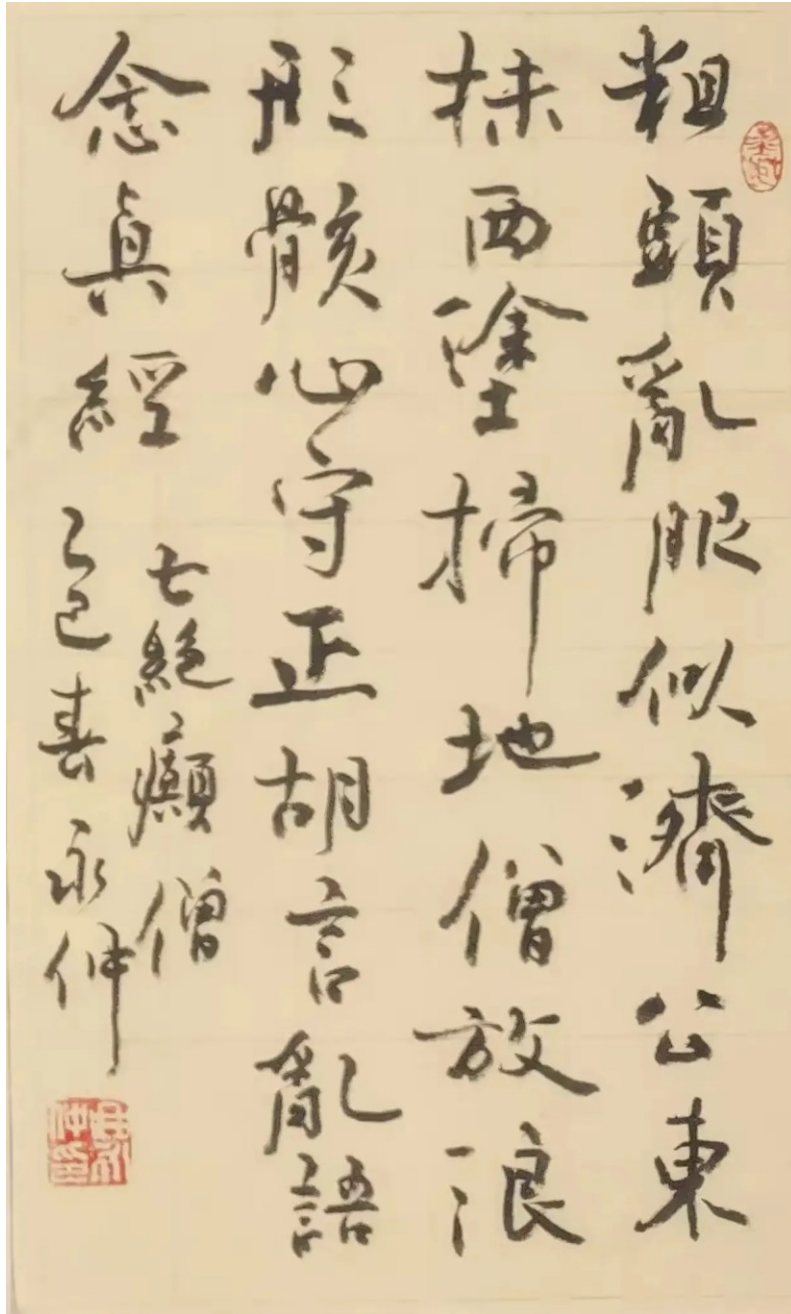 粗頭亂服似濟公東
抹西塗掃地僧放浪
形骸心守正胡言亂語
念真經
七絕癲僧
乙巳春永仲